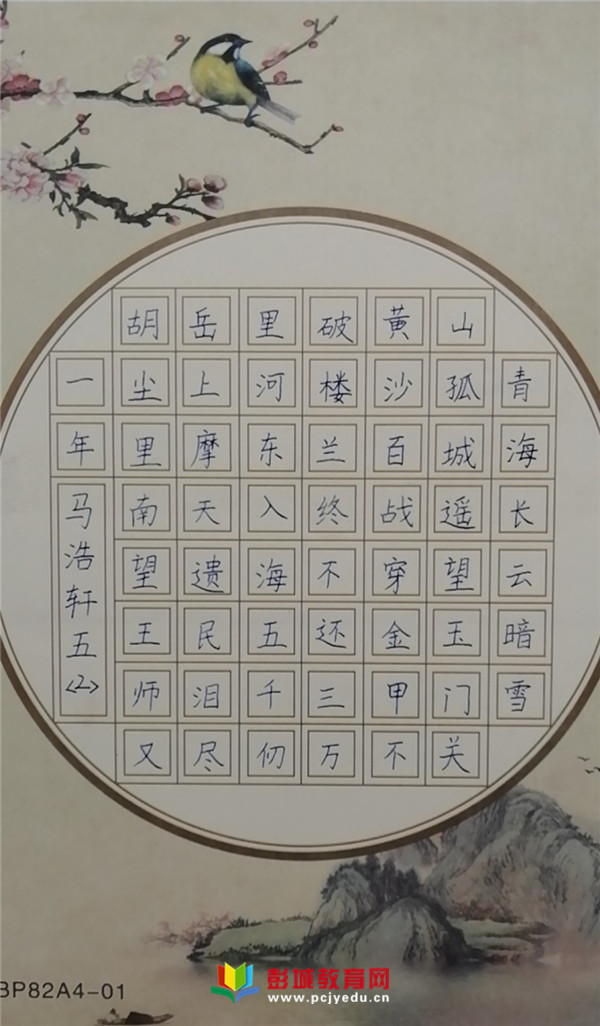 青海长云暗雪
山孤城遥望玉门关
黄沙百战穿金甲不
破楼兰终不还三万
里河东入海五千仞
岳上摩天遗民泪尽
胡尘里南望王师又
一年
马浩轩五<2>
BP82A4-01
彭城教育网
www.pcjyedu.cn